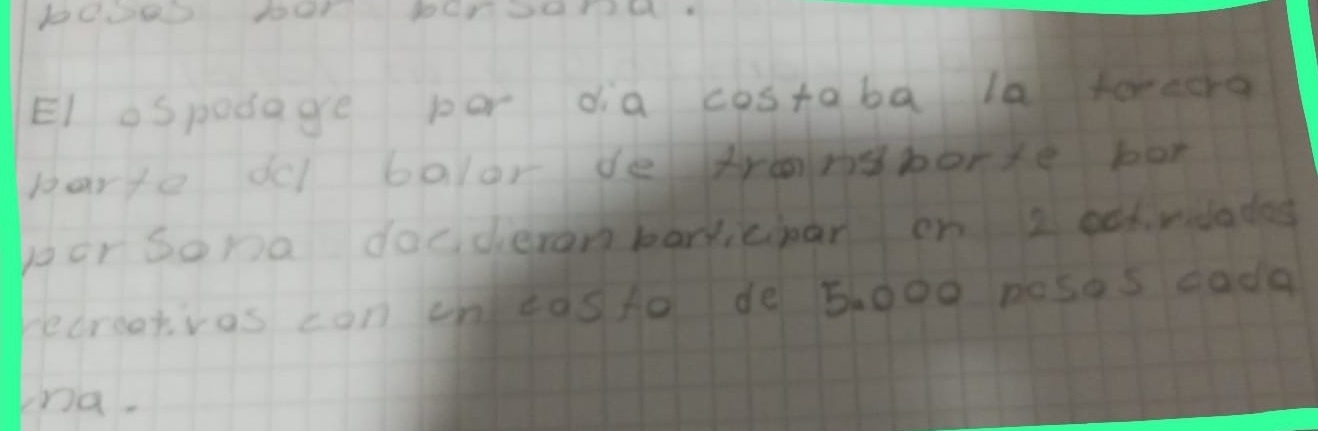 pesos por persona.
El ospedage por dia costaba la tercera
parte del balor de transporte por
persona decidieron participar en 2 actividades
recreativas con un costo de 5.000 pesos cada
una.